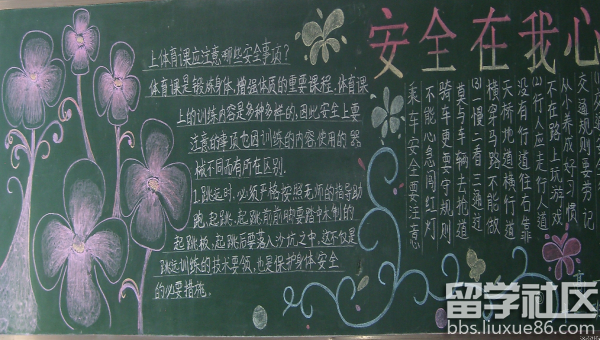 安全在我心
上体育课应注意哪些安全事项?
体育课是锻炼身体,增强体质的重要课程,体育课
上的训练内容是多种多样的,因此安全上要
注意的事项也因训练的内容,使用的器
械不同而有所区别.
1.跳远时,必须严格按照老师的指导助
跑,起跳.起跳前前脚要踏中木制的
起跳板,起跳后要落入沙坑之中,这不仅是
跳远训练的技术要领,也是保护身体安全
的必要措施.
交通规则要劳记
从小养成好习惯
不在路上玩游戏
(2)行人应走行人道
没有行道往右靠
天桥地道横行道
横穿马路不能做
(3)一慢二看三通过
莫与车辆去抢道
骑车更要守规则
不能心急闯红灯
乘车安全要注意
留学社区
bbs.liuxue86.com